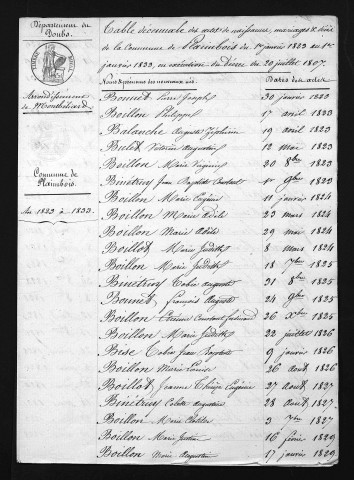 Département du
Doubs.
Arrondissement
de Montbéliard
Commune de
Plaimbois.
De 1823 à 1833.
Table décennale des actes de naissances, mariages & décès
de la Commune de Plaimbois du 1er janvier 1823 au 1er
janvier 1833, en exécution du Décret du 20 juillet 1807.
Noms & prénoms des nouveaux nés. Dates des actes
Bonnet Pierre Joseph 30 janvier 1823
Boillon Philippe 17 avril 1823
Balanche Auguste Zéphirin 19 avril 1823
Bulet Victorine Augustine 12 mai 1823
Boillon Marie Virginie 30 8bre 1823
Binétruy Jean Baptiste Constant 1er 9bre 1823
Boillon Marie Eugénie 11 janvier 1824
Boillon Marie Adèle 23 mars 1824
Boillon Marie Adèle 29 mai 1824
Boillot Marie Judith 8 mars 1824
Boillon Marie Judith 18 7bre 1825
Binétruy Auguste 31 8bre 1825
Bonnet François Auguste 24 9bre 1825
Boillon Constant 26 Xbre 1825
Boillon Marie Judith 22 juillet 1826
Bise Jean Baptiste 9 janvier 1826
Boillon Marie Louise 26 août 1826
Boillot Jeanne Thérèse Eugénie 27 août 1827
Binétruy Augustine 28 août 1827
Boillon Marie 3 7bre 1827
Boillon Marie Justine 16 février 1829
Boillon Marie Augustine 17 janvier 1829